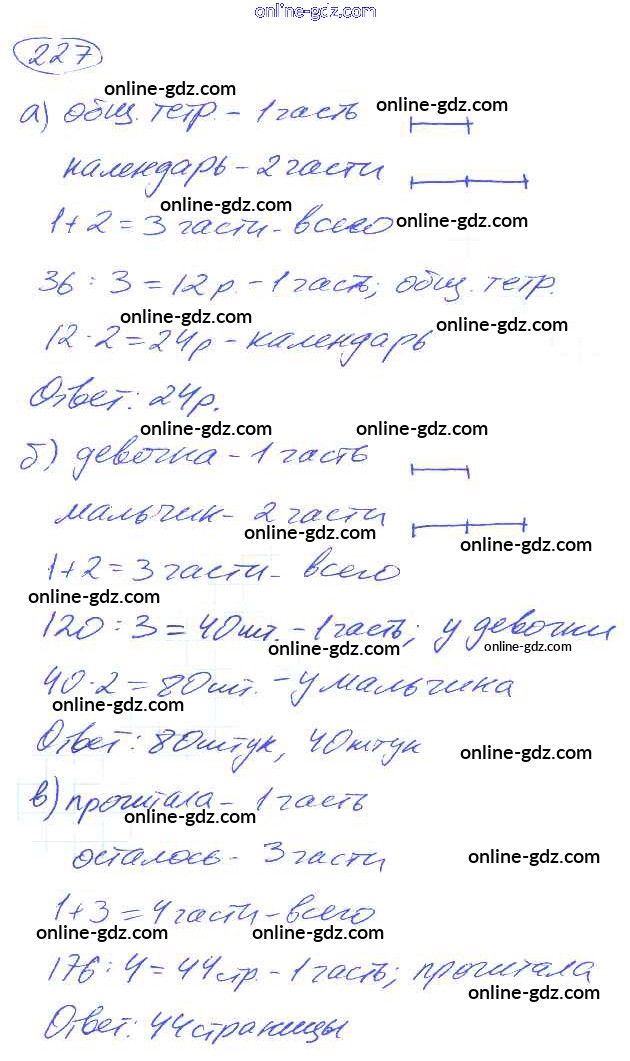 online-gdz.com
227
online-gdz.com
online-gdz.com
а) общ. тетр. - 1 часть
календарь - 2 части
online-gdz.com
online-gdz.com
1+2=3 части - всего
36 : 3 = 12 р. - 1 часть; общ. тетр.
online-gdz.com
online-gdz.com
12 · 2 = 24 р - календарь
Ответ: 24 р.
online-gdz.com
online-gdz.com
б) девочка - 1 часть
мальчик - 2 части
online-gdz.com
online-gdz.com
1+2=3 части - всего
online-gdz.com
120 : 3 = 40 шт. - 1 часть; у девочки
online-gdz.com
online-gdz.com
40 · 2 = 80 шт. - у мальчика
online-gdz.com
Ответ: 80 штук, 40 штук
online-gdz.com
в) прочитала - 1 часть
online-gdz.com
осталось - 3 части
online-gdz.com
1+3=4 части - всего
online-gdz.com
online-gdz.com
176 : 4 = 44 стр. - 1 часть; прочитала
online-gdz.com
Ответ: 44 страницы